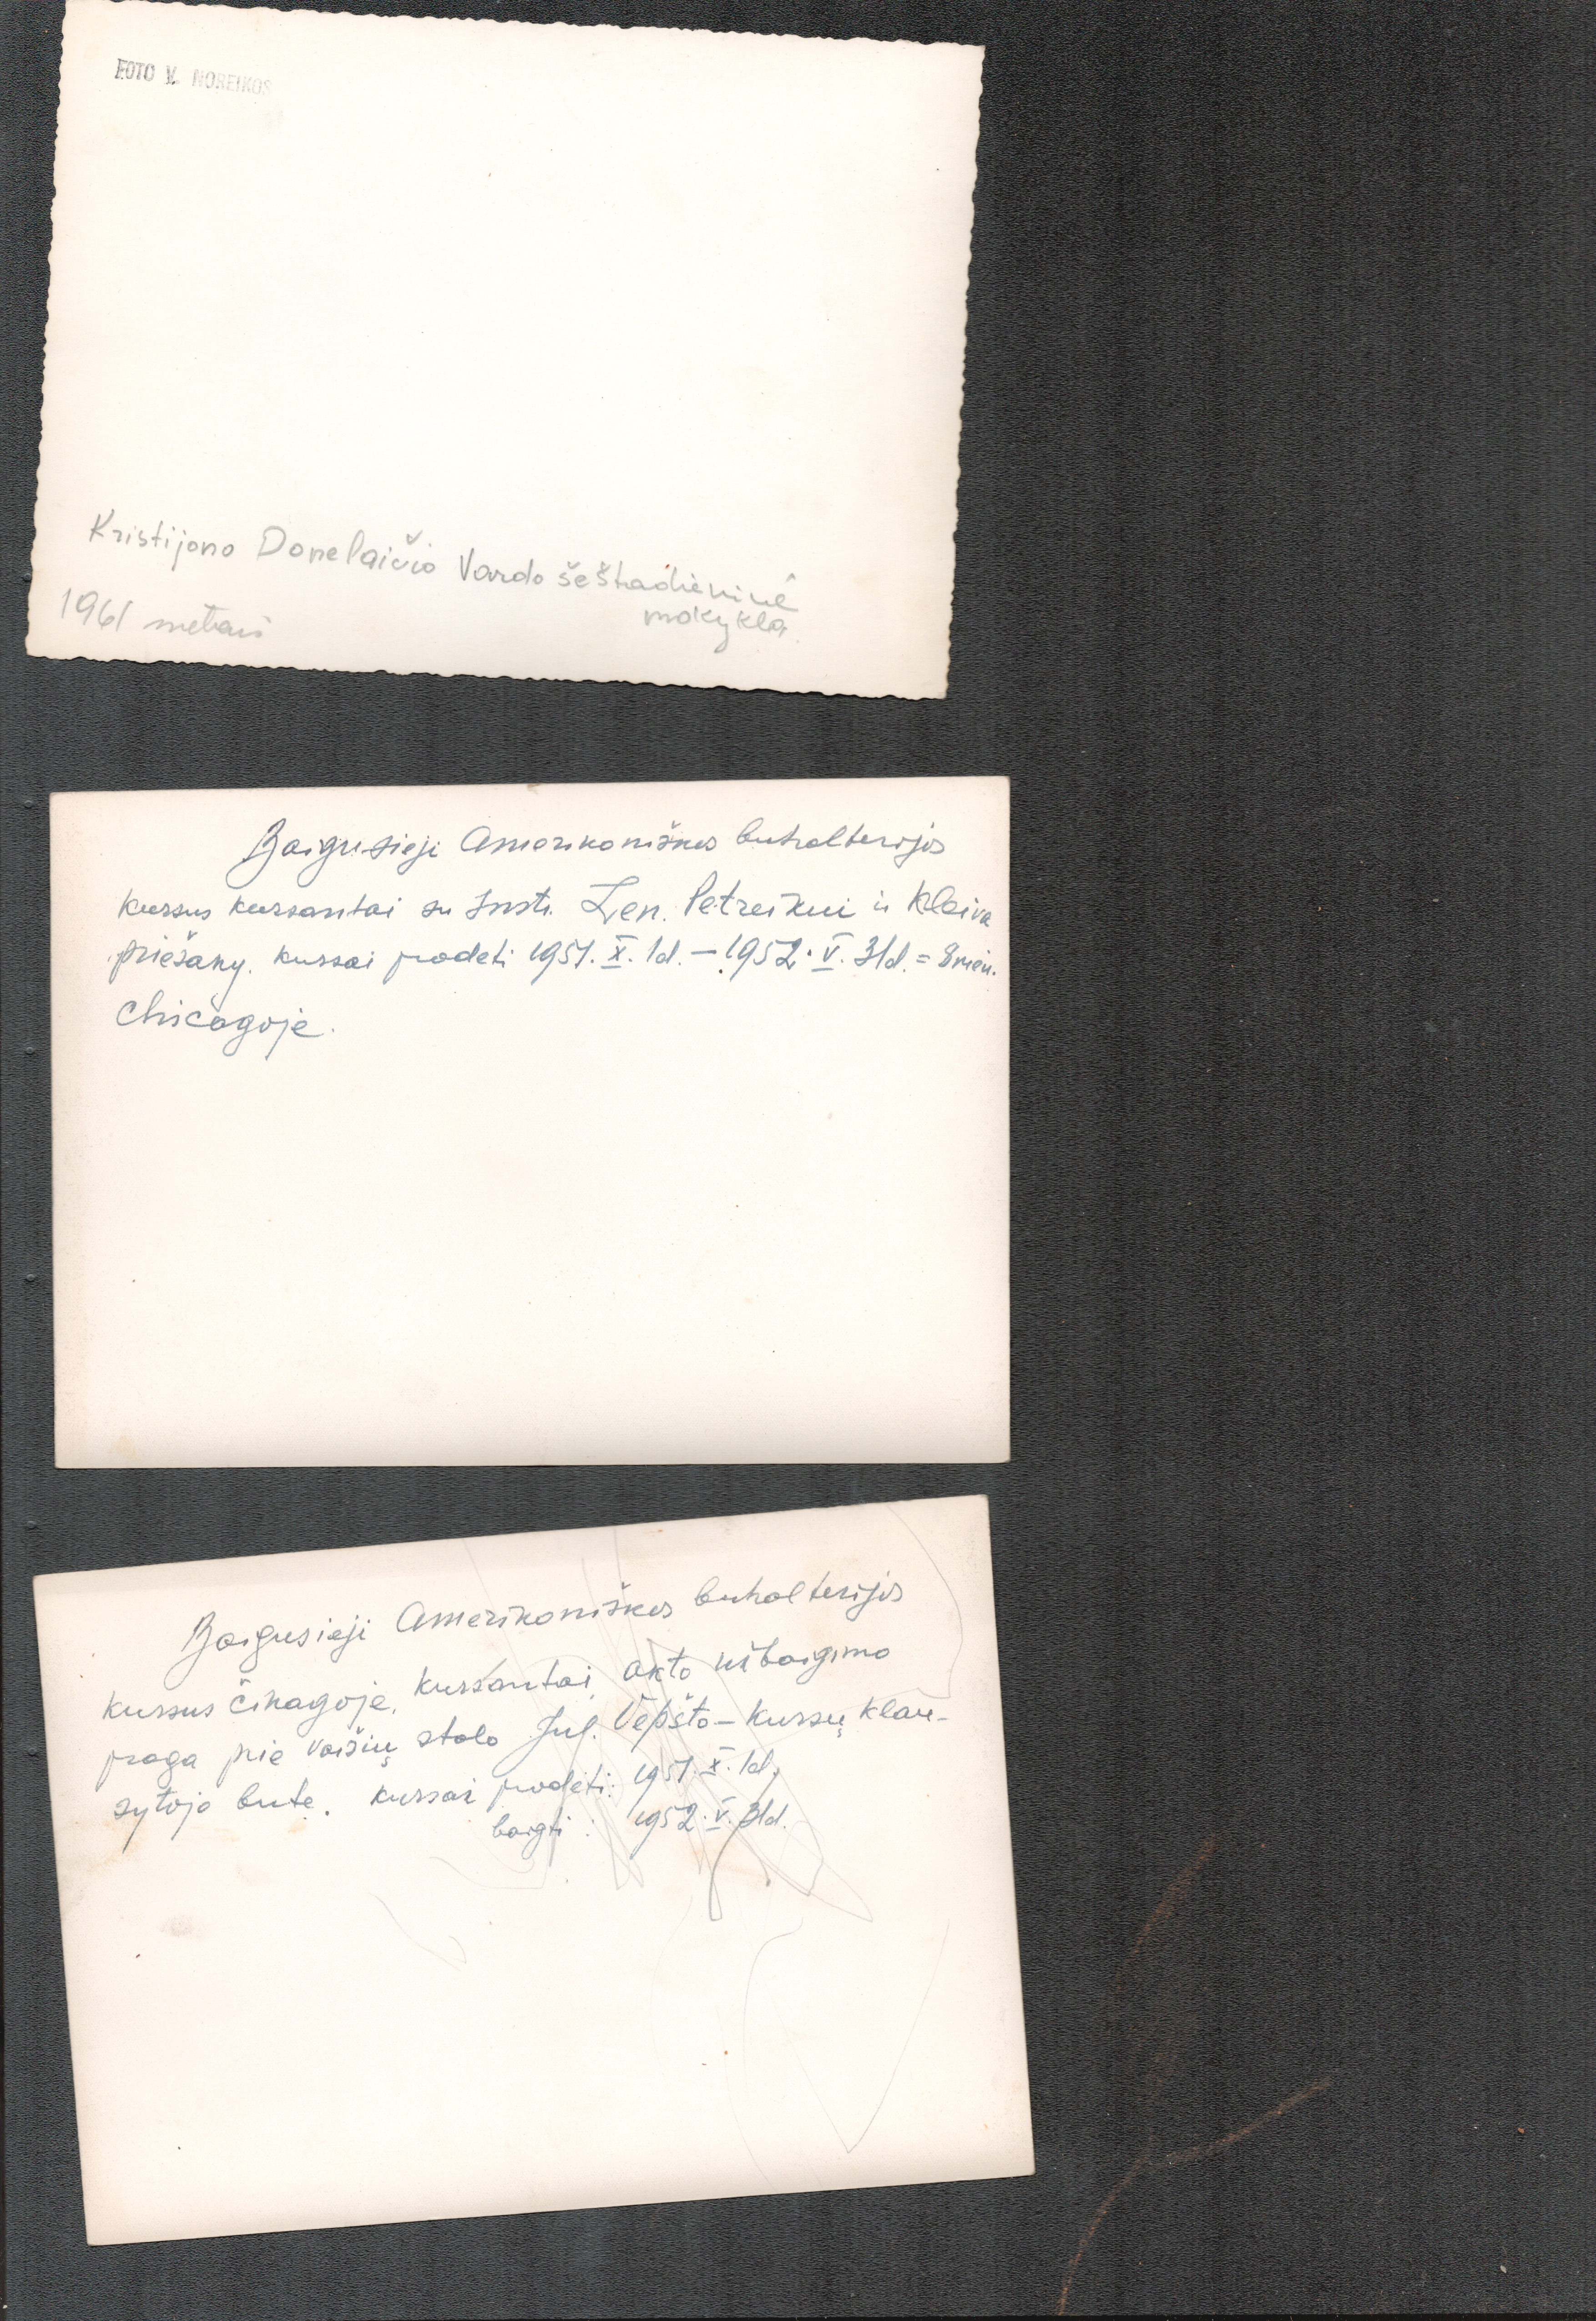 FOTO V. NOREIKOS
Kristijono Donelaičio Vardo šeštadieninė
mokykla
1961 metais
Baigusieji Amerikoniškos buhalterijos
kursus kursantai su Instr. Len. Petreikui ir Kleiva
priešaky. Kursai pradėti 1951. X. 1d. – 1952. V. 31d. = 8 mėn.
Chicagoje.
Baigusieji Amerikoniškos buhalterijos
kursus Čikagoje. Kursantai akto užbaigimo
proga prie vaišių stalo Jul. Vepšto – Kursų klau-
sytojo bute. Kursai pradėti: 1951. X. 1d,
baigti : 1952. V. 31d.